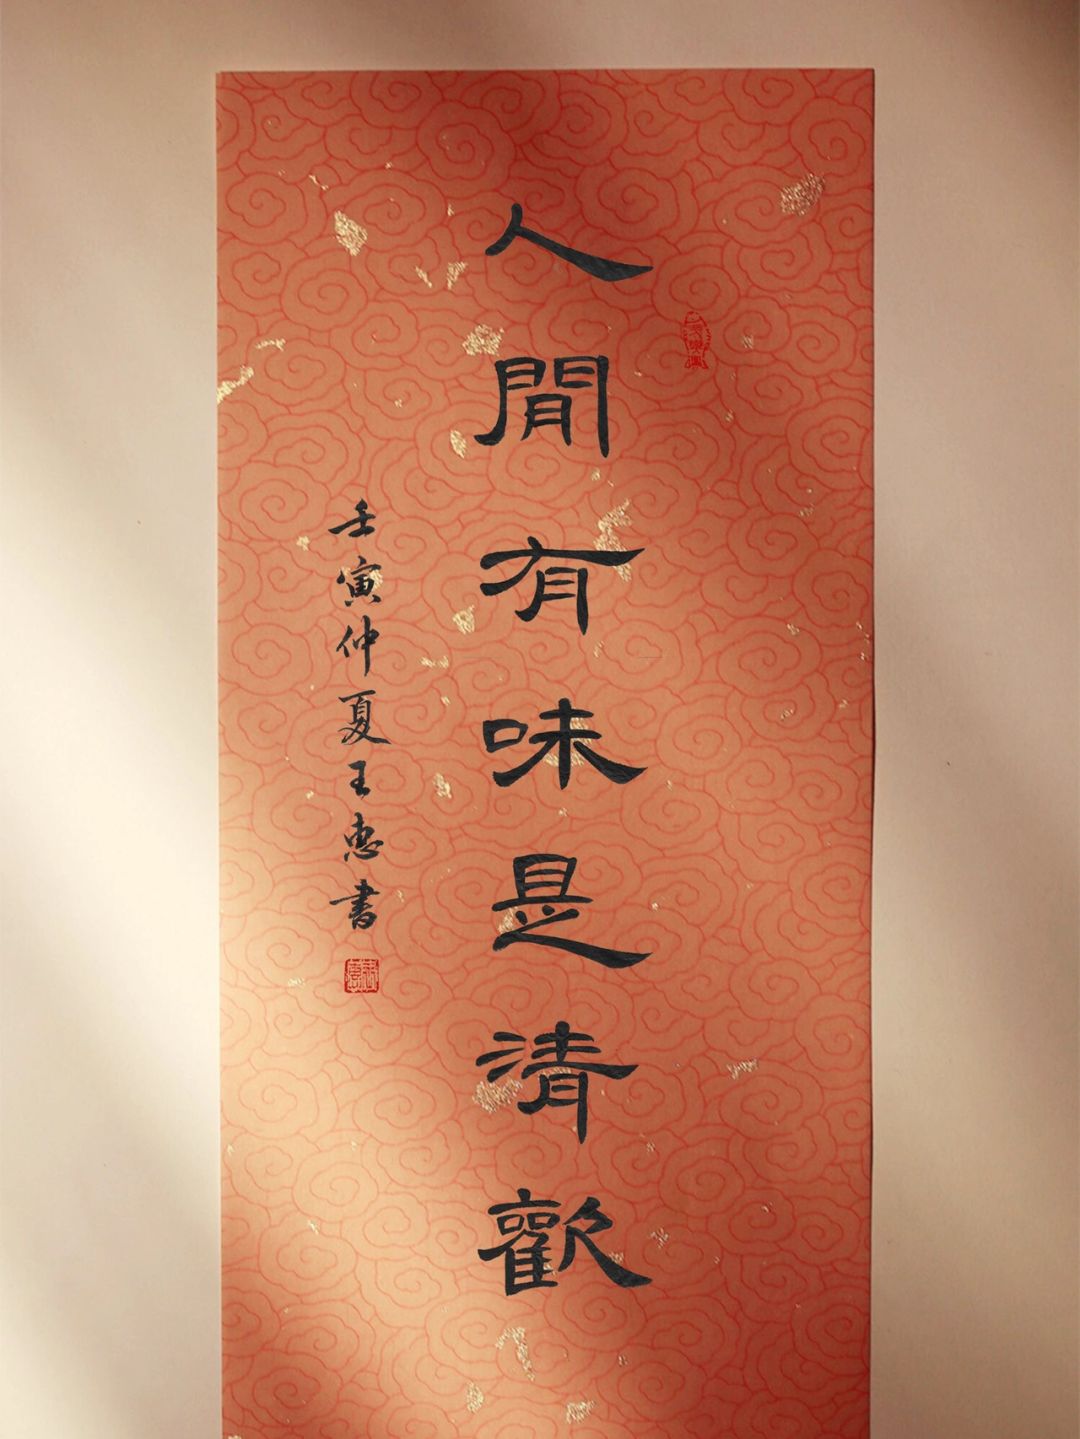 人間有味是清歡
壬寅仲夏王惠書